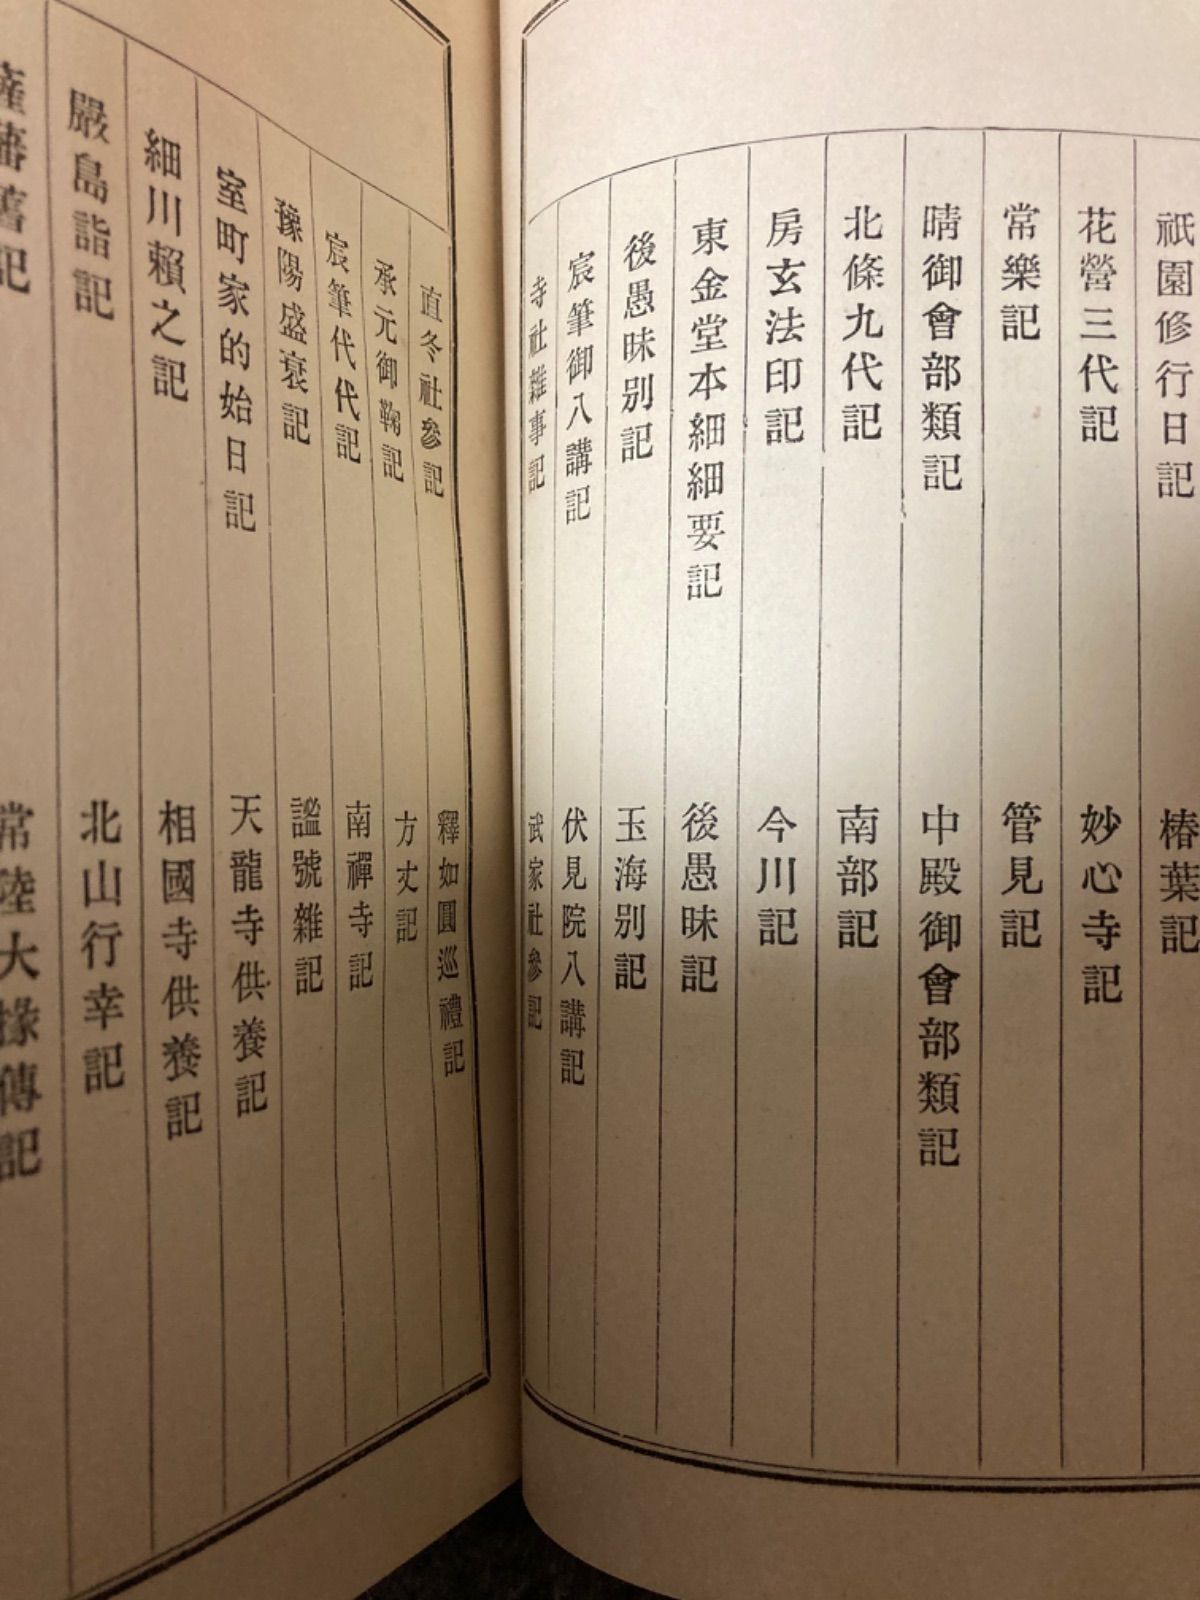 祇園修行日記
椿葉記
花營三代記
妙心寺記
常樂記
管見記
晴御會部類記
中殿御會部類記
北條九代記
南部記
房玄法印記
今川記
東金堂本細細要記
後愚昧記
後愚昧別記
玉海別記
宸筆御八講記
伏見院八講記
寺社雜事記
武家社參記
直冬社參記
釋如圓巡禮記
承元御鞠記
方丈記
宸筆代代記
南禪寺記
豫陽盛衰記
謚號雜記
室町家的始日記
天龍寺供養記
細川賴之記
相國寺供養記
嚴島詣記
北山行幸記
薩藩舊記
常陸大掾傳記